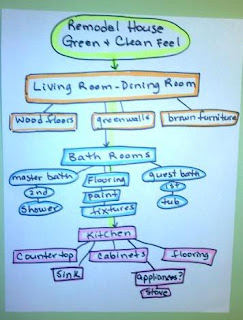 Remodel House
Green & Clean Feel
Living Room - Dining Room
wood floors
green walls
brwn furniture
Bath Rooms
master bath
Flooring
guest bath
2nd
paint
1st
shower
fixtures
tub
Kitchen
Counter top
Cabinets
flooring
sink
appliances?
stove